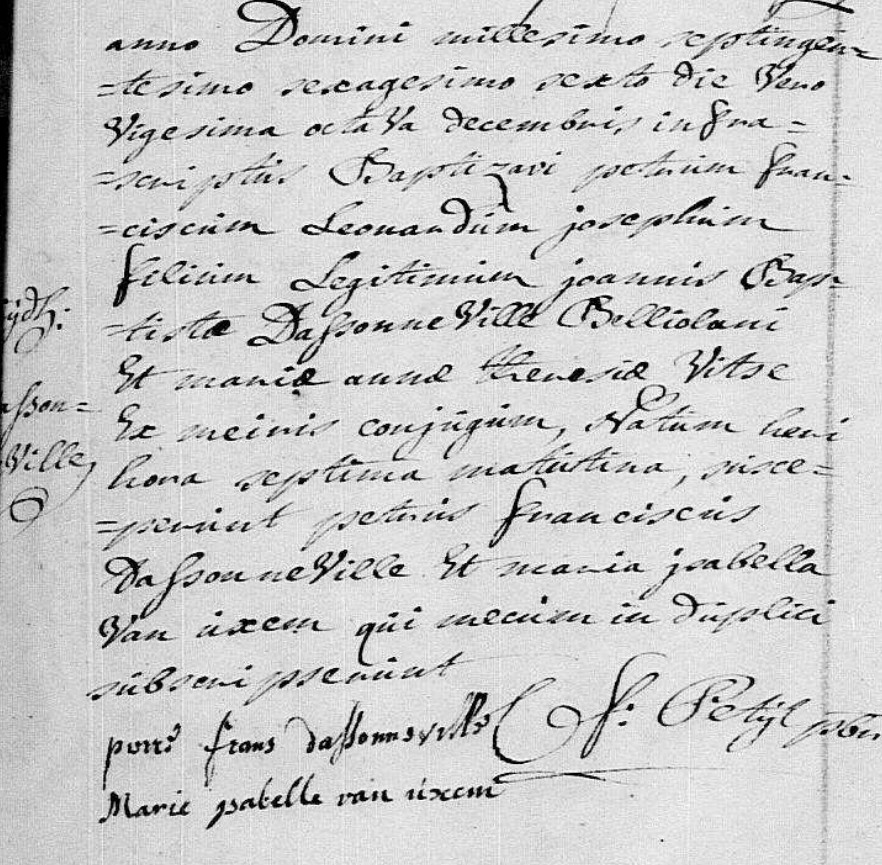 anno Domini millesimo septingen=
=tesimo sexagesimo sexto die Vero
Vigesima octaVa decembris, infra=
=scriptus Baptizavi petrum fran=
=ciscum Leonardum josephum
filium Legitimum joannis Bap=
=tistæ DassonneVille Belliolani
Et mariæ annæ theresiæ Vitse
Ex meinis conjugum, Natum heri
hora septima matutina, susce=
=perunt petrus franciscus
DassonneVille Et maria jsabella
Van uxem qui mecum in duplici
subscripserunt
frans dassonneville f: Petijt pbr
Marie jsabelle van uxem
asson=
Ville